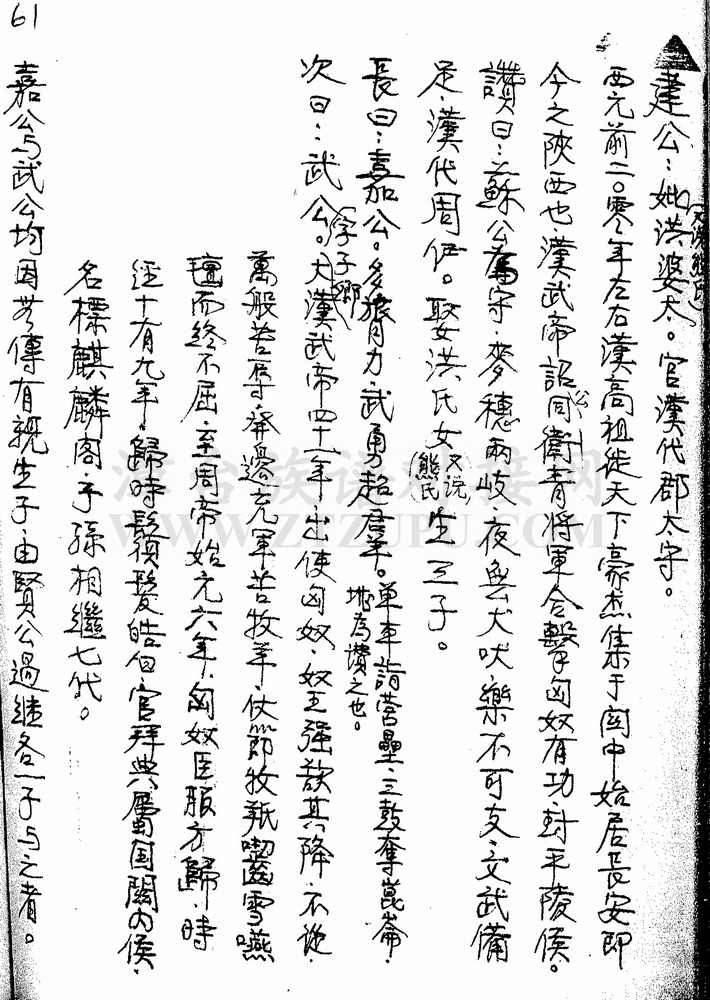 61
建公：妣洪婆太。官漢代郡太守。
又說熊氏
西元前二〇零年左右漢高祖徙天下豪杰集于関中始居長安即
今之陝西也．漢武帝詔同衛青將軍合擊匈奴有功．封平陵侯。
公
讚曰：蘇公為守．麥穗兩岐．夜無犬吠．樂不可支．文武備
足．漢代周伊。娶洪氏女（又說熊氏）生三子。
長曰：嘉公。多膂力．武勇超君羊。單車詣營壘．三鼓奪崑崙．
堪為讚之也。
次曰：武公。字子卿 大漢武帝四十一年．出使匈奴．奴王强放其降．不從．
萬般苦辱．奔邊充軍苦牧羊．仗節牧羝．啣齒雪嚥
氊而終不屈．至周帝始元六年．匈奴臣服方歸．時
經十有九年．歸時鬚髮皓白．官拜典屬国．關內侯．
名標麒麟閣．子孫相繼七代。
嘉公与武公均因努傳有親生子．由賢公過继各一子与之者。
漳台族谱对接网
WWW.ZTZUPU.COM